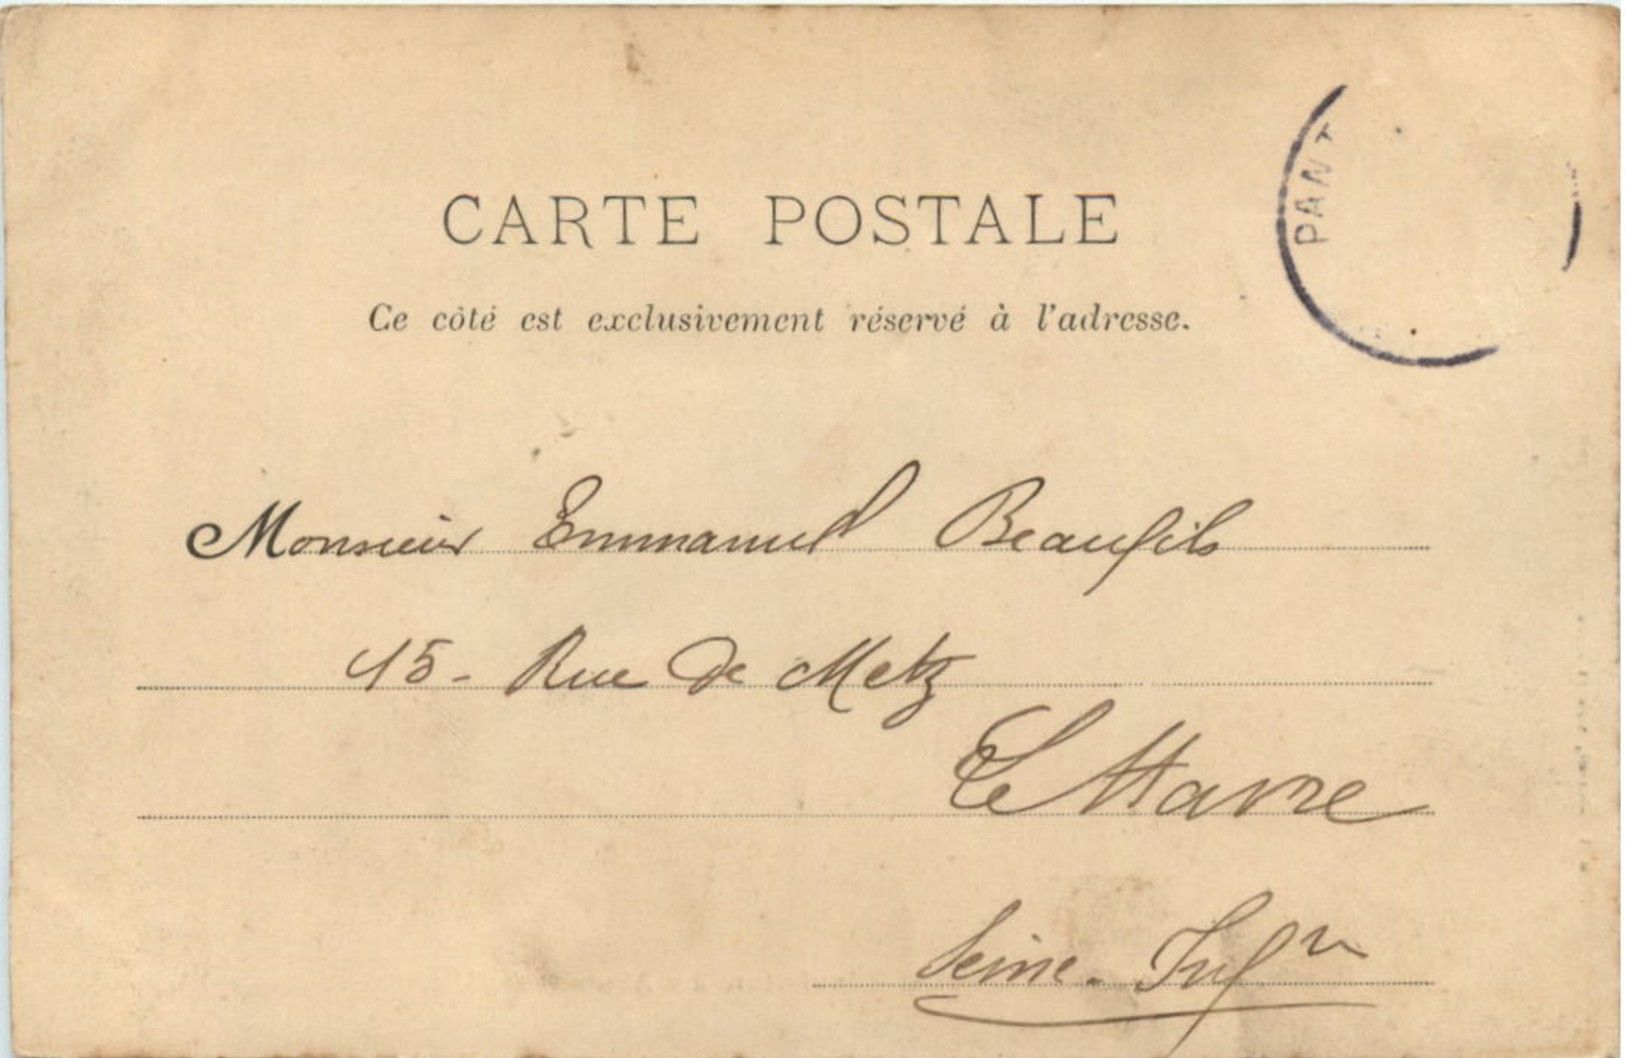 CARTE POSTALE
Ce côté est exclusivement réservé à l'adresse.
PANT
Monsieur Emmanuel Beaufils
15 - Rue de Metz
Le Havre
Seine - Infre